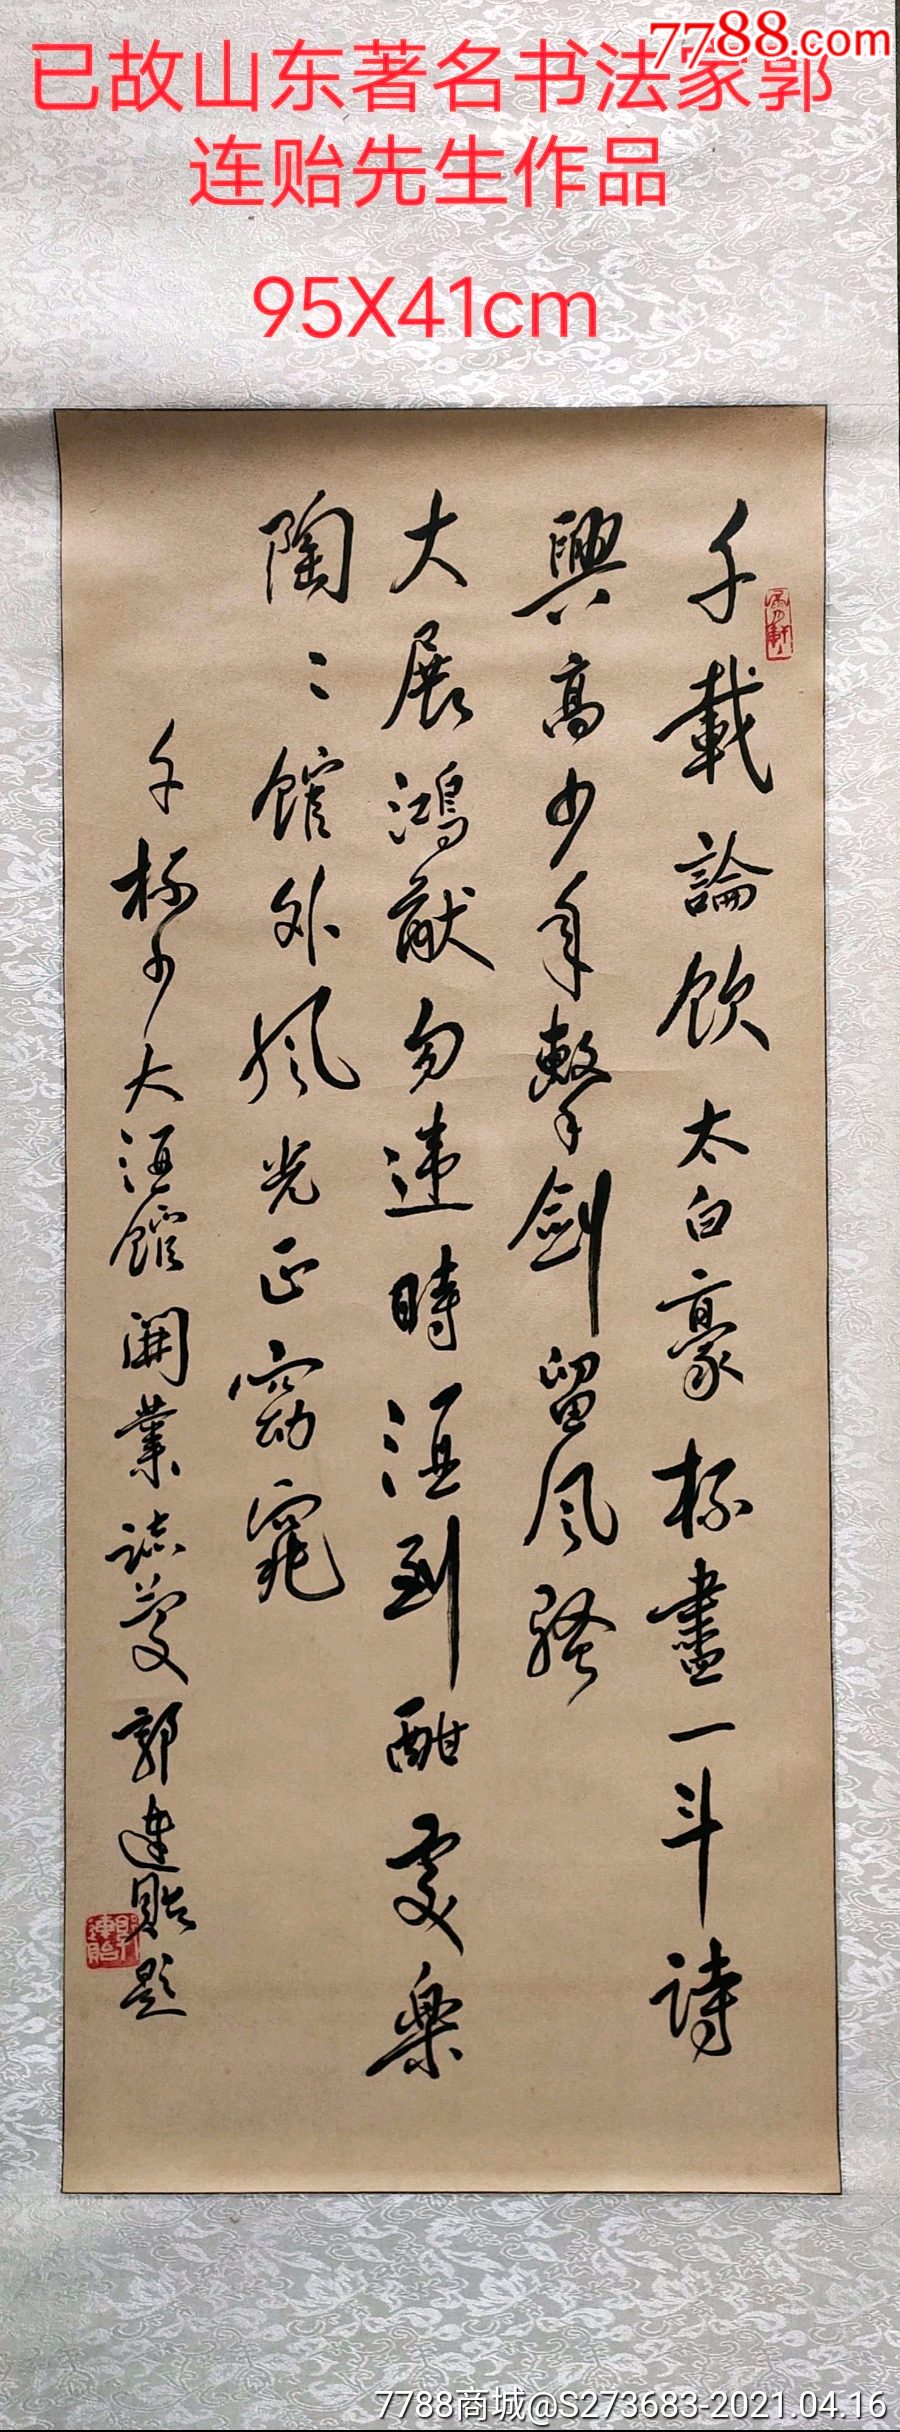 7788.com
已故山东著名书法家郭
连贻先生作品
95X41cm
千載論飲太白豪杯盡一斗詩
興高少年擊劍留風騷
大展鴻猷勿違時酒到酣處樂
陶〻館外風光正窈窕
千杯少大酒館開業誌慶郭連貽題
郭連貽
7788商城@S273683-2021.04.16